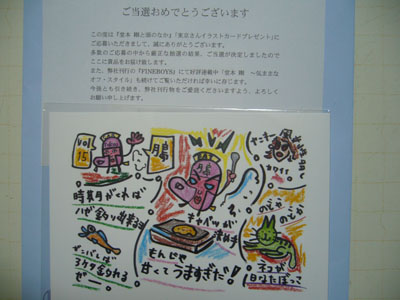 ご当選おめでとうございます
この度は『堂本 剛と頭のなか』「東京さんイラストカードプレゼント」に
ご応募いただきまして、誠にありがとうございます。
多数のご応募の中から厳正な抽選の結果、ご当選が決定しましたので
ここに賞品をお届け致します。
また、弊社刊行の『FINEBOYS』にて好評連載中「堂本 剛 ～気ままな
オフ・スタイル」も続けてご覧いただければ幸いに存じます。
今後とも引き続き、弊社刊行物をご愛読くださいますよう、よろしく
お願い申し上げます。
vol
15
月島
時期がくれば
ハゼ釣り出来る
ゼンバしば
3ケタ釣れる
ぜー
キャベツが
決め手
もんじゃ
甘くてうますぎた！
ヤンキー
カワイイ
のらや
のどか
ネコが
1日なたぼっこ